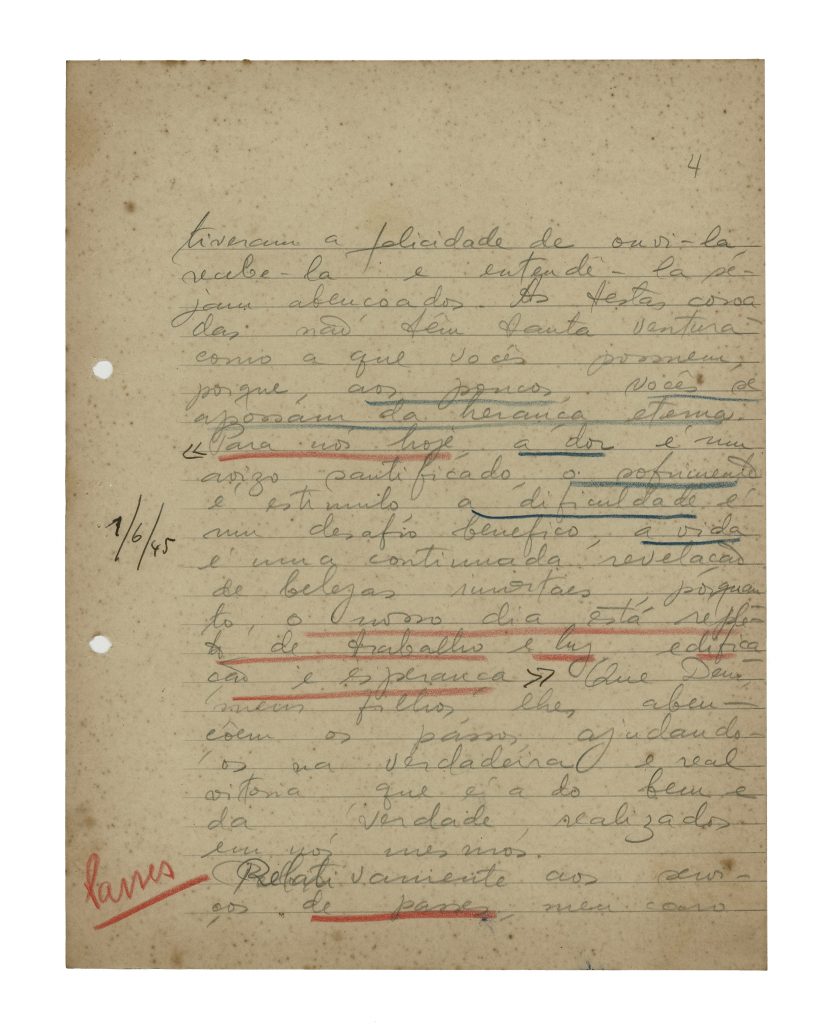 4
tiveram a felicidade de ouvi-la
recebe-la e entendê-la se-
jam abençoados. As testas coroa
das não têm tanta ventura
como a que vocês possuem,
porque, aos poucos, vocês se
apossam da herança eterna.
"Para nós hoje, a dor é um
avizo santificado, o sofrimento
é estimulo, a dificuldade é
um desafio benefico, a vida
1/6/45
é uma continuada revelação
de belezas imortaes, porquan
to, o nosso dia está reple-
to de trabalho e luz edifica
ção e esperança" Que Deus
meus filhos lhes aben-
çôem os passos ajudando-
os na verdadeira e real
vitoria que é a do bem e
da verdade realizados
em nós mesmos.
Passes
Relativamente aos servi-
ços de passes, meu caro